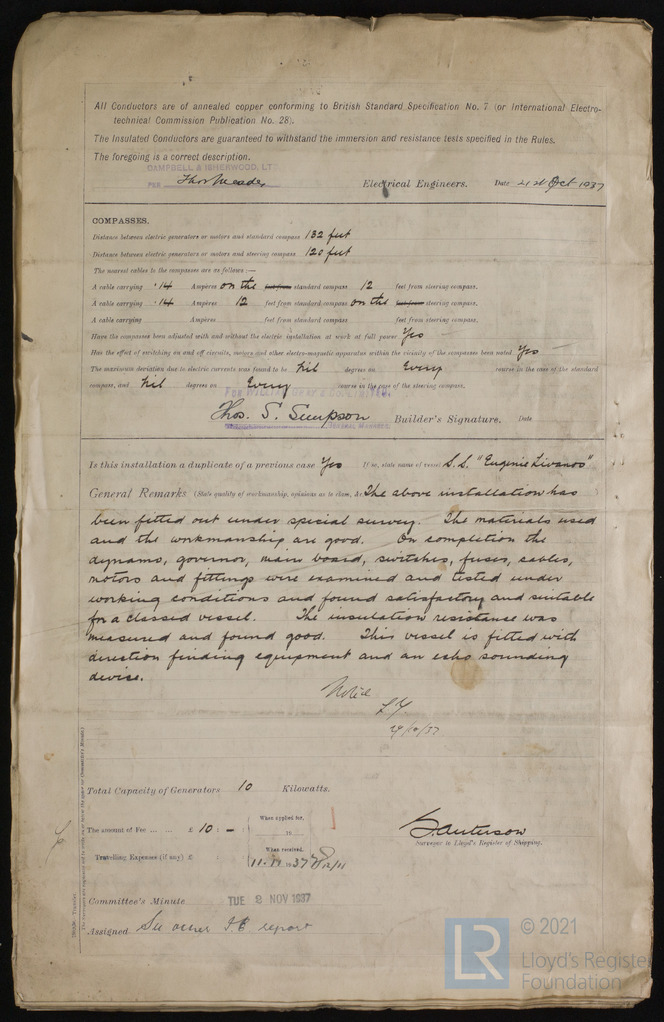 All Conductors are of annealed copper conforming to British Standard Specification No. 7 (or International Electro-
technical Commission Publication No. 28).
The Insulated Conductors are guaranteed to withstand the immersion and resistance tests specified in the Rules.
The foregoing is a correct description.
CAMPBELL & ISHERWOOD, LTD
PER Electrical Engineers. Date 21st Oct 1937
COMPASSES.
Distance between electric generators or motors and standard compass 132 feet
Distance between electric generators or motors and steering compass 120 feet
The nearest cables to the compasses are as follows:—
A cable carrying .14 Ampères on the standard compass 12 feet from steering compass.
A cable carrying .14 Ampères 12 feet from standard compass on the steering compass.
A cable carrying Ampères feet from standard compass feet from steering compass.
Have the compasses been adjusted with and without the electric installation at work at full power Yes
Has the effect of switching on and off circuits, motors and other electro-magnetic apparatus within the vicinity of the compasses been noted Yes
The maximum deviation due to electric currents was found to be Nil degrees on Every course in the case of the standard
compass, and Nil degrees on Every course in the case of the steering compass.
Thos. S. Simpson Builder's Signature. Date
GENERAL MANAGER.
Is this installation a duplicate of a previous case Yes If so, state name of vessel S.S. "Eugenie Livanos"
General Remarks (State quality of workmanship, opinions as to class, &c. The above installation has
been fitted out under special survey. The materials used
and the workmanship are good. On completion the
dynamo, governor, main board, switches, fuses, cables,
motors and fittings were examined and tested under
working conditions and found satisfactory and suitable
for a classed vessel. The insulation resistance was
measured and found good. This vessel is fitted with
direction finding equipment and an echo sounding
devise.
Noted
29/10/37
Total Capacity of Generators 10 Kilowatts.
The amount of Fee ... ... £ 10 : - : When applied for, 19
Surveyor to Lloyd's Register of Shipping.
Travelling Expenses (if any) £ : When received, 11. 11 1937
Committee's Minute TUE 2 NOV 1937
Assigned See other F.E. report
© 2021
LR
Lloyd's Register
Foundation